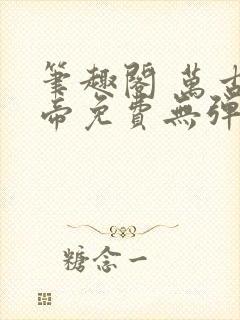 筆趣閣 萬古
帝免費無彈
糖念一